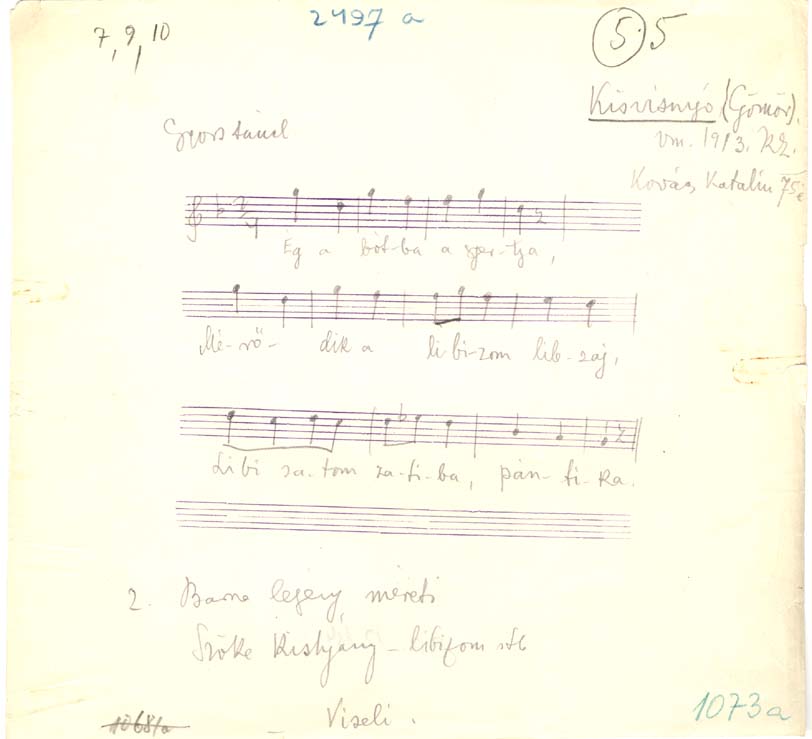 7, 9, 10
2497 a
5. 5
Kisvisnyó (Gömör).
vm. 1913. KZ.
Kovács Katalin 75é
Gyors tánc
Ég a bót-ba a gyer-tya,
Mé-rő- dik a li bi-zom lib-záj,
Libi za-tom za-ti-ba, pán-ti-ka.
2. Barna legény méreti
Szőke kislyány - libizom stb
- Viseli.
1068/a
1073a